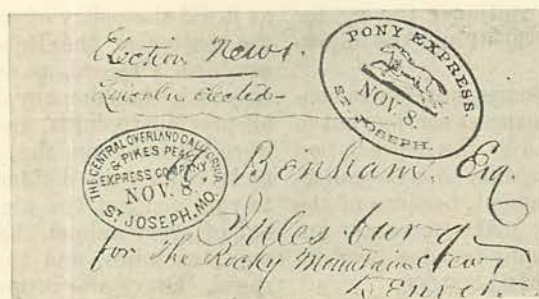 Election News.
Lincoln elected-
PONY EXPRESS.
NOV 8.
ST JOSEPH.
THE CENTRAL OVERLAND CALIFORNIA
& PIKES PEAK
EXPRESS COMPANY
NOV. 8.
ST JOSEPH. MO.
Benham, Esq.
Julesburg
for The Rocky Mountain
Denver.